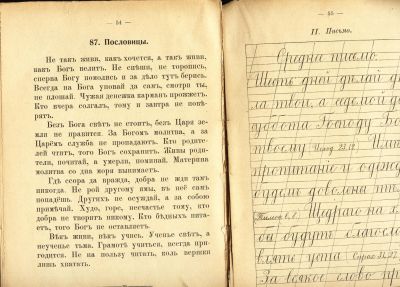 — 54 —
87. Пословицы.
Не такъ живи, какъ хочется, а такъ живи,
какъ Богъ велитъ. Не спѣши, не торопись,
сперва Богу помолись и за дѣло тутъ берись.
Всегда на Бога уповай да самъ, смотри ты,
не плошай. Чужая денежка карманъ прожжетъ.
Кто вчера солгалъ, тому и завтра не повѣ-
рятъ.
Безъ Бога свѣтъ не стоитъ, безъ Царя зем-
ля не правится. За Богомъ молитва, а за
Царёмъ служба не пропадаютъ. Кто родите-
лей чтитъ, того Богъ сохранитъ. Живы роди-
тели, почитай, а умерли, поминай. Материна
молитва со дна моря вынимаетъ.
Гдѣ ссора да вражда, добра не жди тамъ
никогда. Не рой другому ямы, въ неё самъ
попадёшь. Другихъ не осуждай, а за собою
примѣчай. Худо, горе, несчастье тому, кто
добра не творитъ никому. Кто бѣдныхъ пита-
етъ, того Богъ не оставляетъ.
Вѣкъ живи, вѣкъ учись. Ученье свѣтъ, а
неученье тьма. Грамотѣ учиться, всегда при-
годится. Не на пользу читать, коль вершки
лишь хватать.
— 55 —
II. Письмо.
Средня письмо.
Шесть дней дѣлай
ла твои, а
суббота Господу
твоему
пропитаніе и
будемъ довольны
Щедраго на
бѣ будутъ
уста
За всякое слово